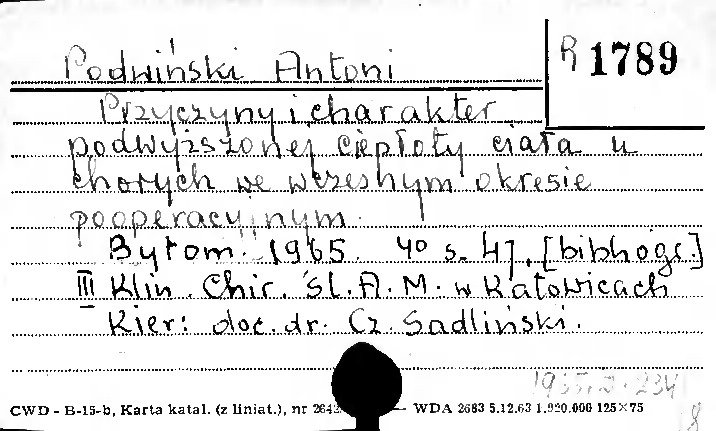 Podwiński Antoni
R 1789
Przyczyny i charakter
podwyższonej ciepłoty ciała u
chorych we wczesnym okresie
pooperacyjnym.
Bytom. 1965. 4° s. 47, [bibliogr.]
III Klin. Chir. Śl. A. M. w Katowicach
Kier: doc. dr. Cz. Sadliński.
CWD - B-15-b, Karta katal. (z liniat.), nr 2642 — WDA 2683 5.12.63 1.920.000 125×75